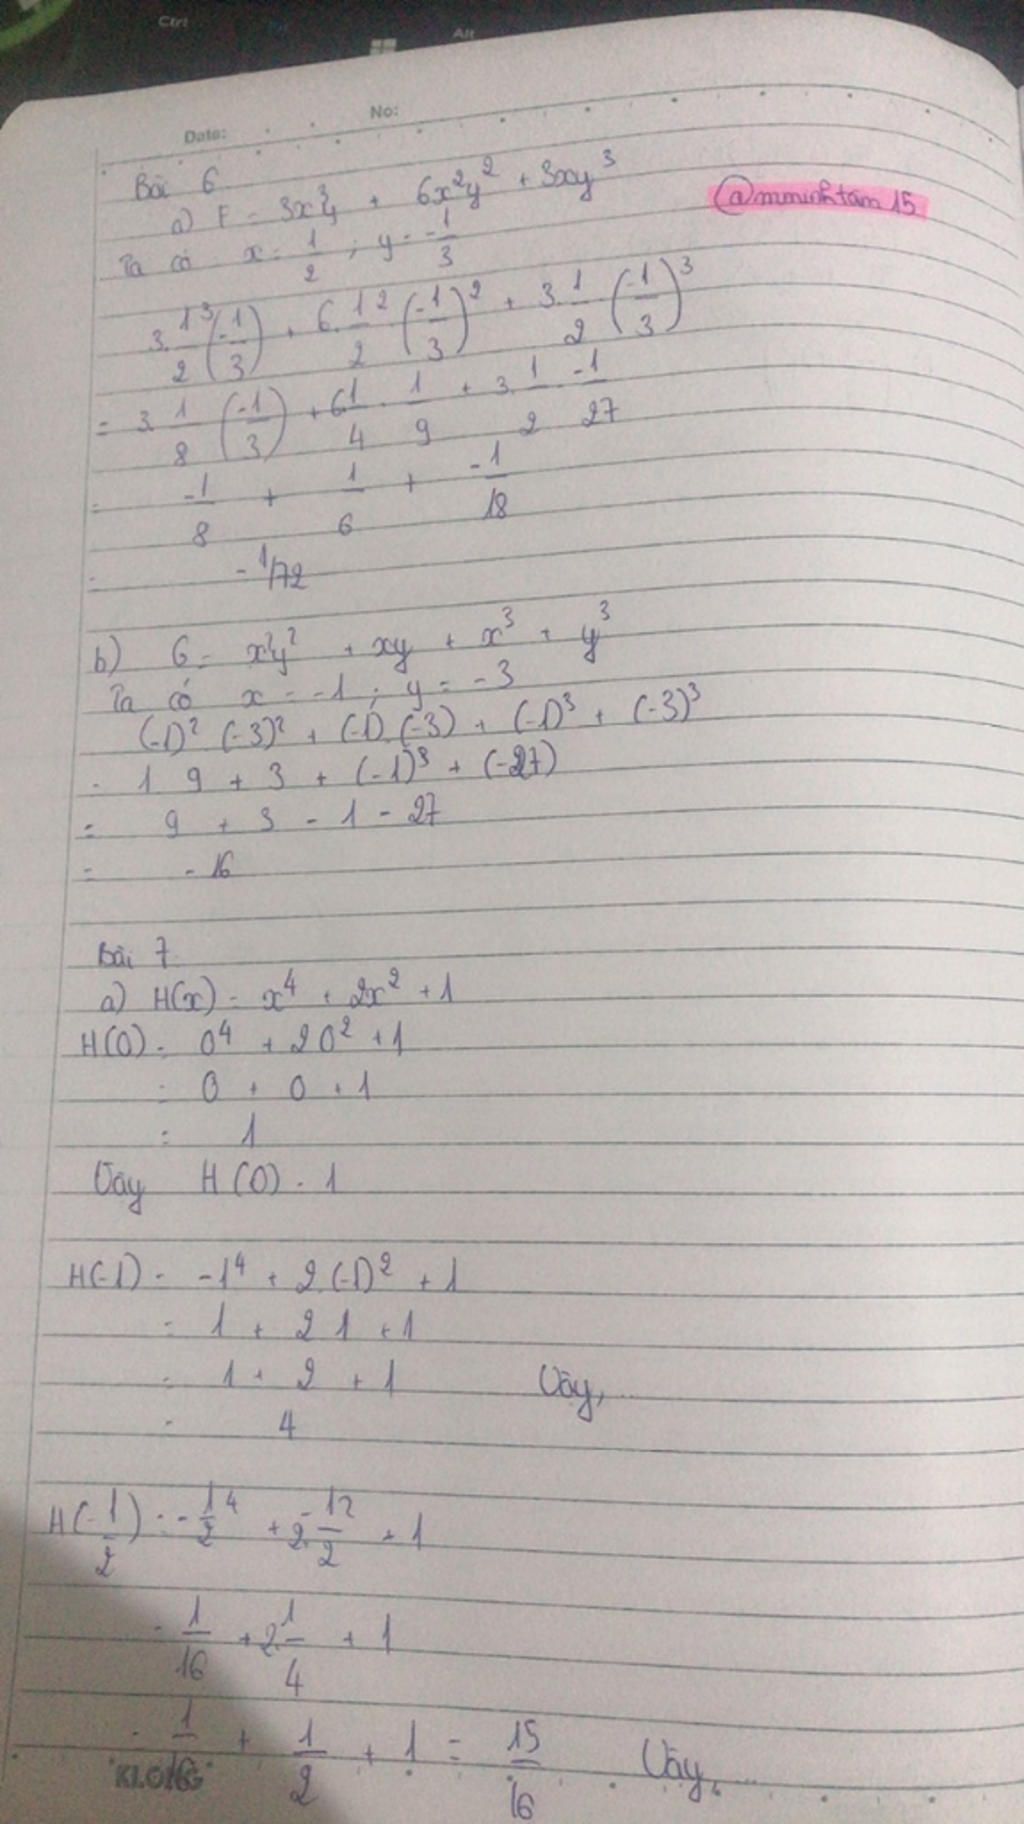 Ctrl
Alt
Date: No:
Bài 6
a) F = 3x³y + 6x²y² + 3xy³
@mminhtam15
Ta có x = 1/2 ; y = -1/3
3.1/2³(-1/3) + 6.1/2²(-1/3)² + 3.1/2(-1/3)³
= 3.1/8(-1/3) + 6.1/4.1/9 + 3.1/2.-1/27
= -1/8 + 1/6 + -1/18
= -1/72
b) G = x²y² + xy + x³ + y³
Ta có x = -1 ; y = -3
(-1)².(-3)² + (-1).(-3) + (-1)³ + (-3)³
= 1.9 + 3 + (-1)³ + (-27)
= 9 + 3 - 1 - 27
= -16
Bài 7
a) H(x) = x⁴ + 2x² + 1
H(0) = 0⁴ + 2.0² + 1
= 0 + 0 + 1
= 1
Vậy H(0) = 1
H(-1) = -1⁴ + 2.(-1)² + 1
= 1 + 2.1 + 1
= 1 + 2 + 1 Vậy,...
= 4
H(-1/2) = -1/2⁴ + 2.-1/2² + 1
= 1/16 + 2.1/4 + 1
= 1/16 + 1/2 + 1 = 15/16 Vậy,...
KLONG